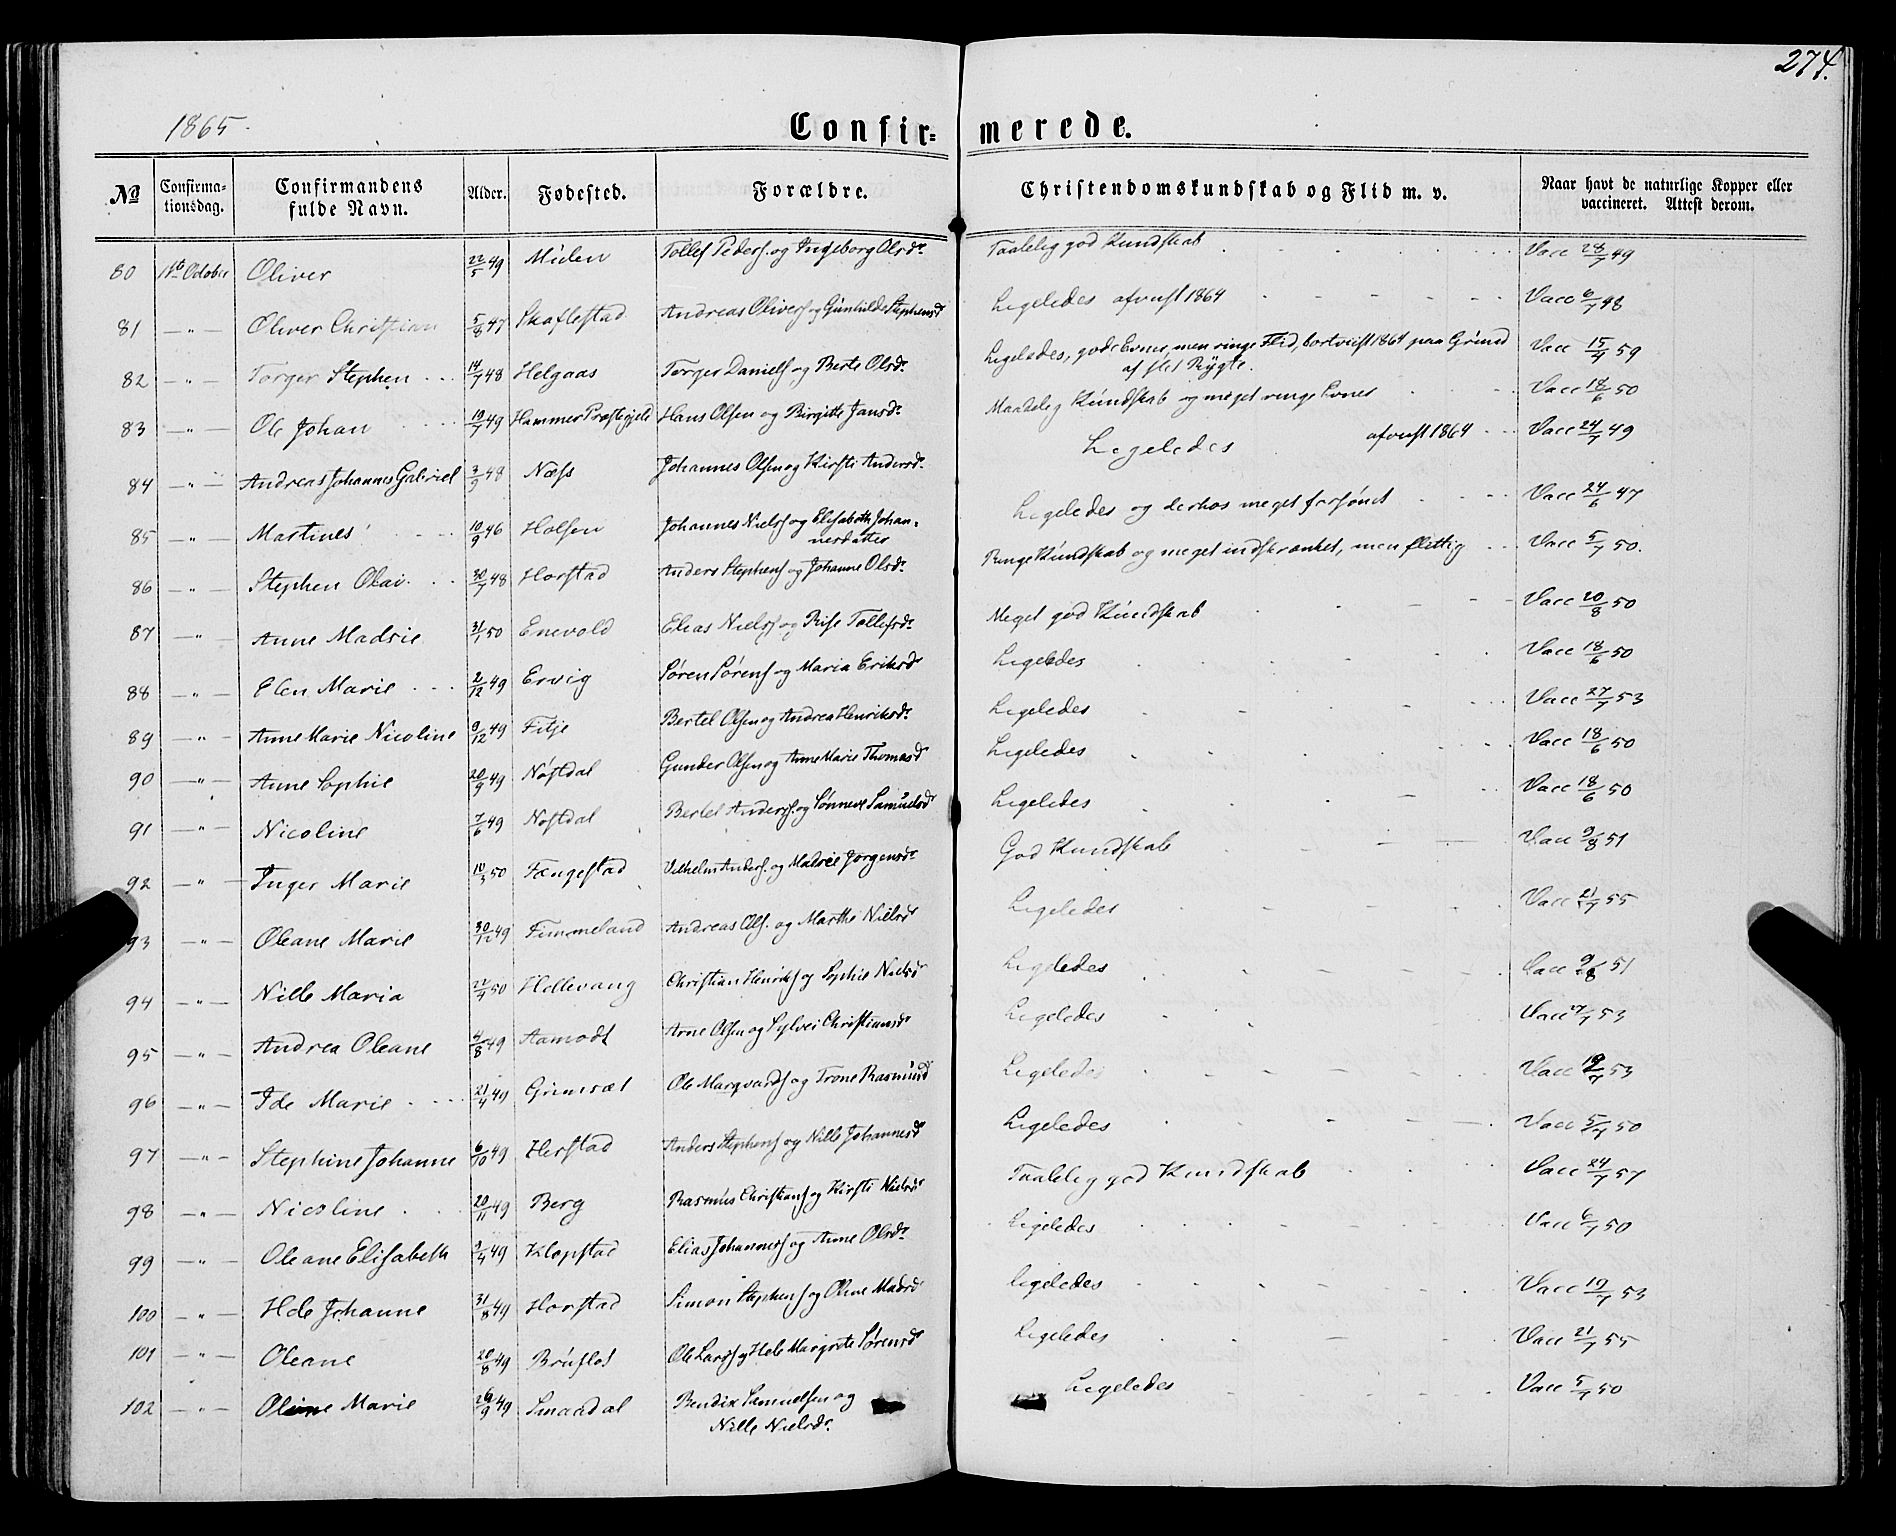 274.
1865.
Confir= merede.
No
Confirma-
tionsdag.
Confirmandens
fulde Navn.
Alder.
Fødested.
Forældre.
Christendomskundskab og Flid m. v.
Naar havt de naturlige Kopper eller
vaccineret. Attest derom.
80 October Oliver 22/5 49 Miden Tollef Peders. og Ingeborg Olsdr Taalelig god Kundskab Vacc 28/7 49
81 — " — Oliver Christian 5/8 47 Skaflestad Andreas Olivers og Gunhilde Stephensd Ligeledes afviist 1864 Vacc 6/7 48
82 — " — Torger Stephen 14/7 48 Helgaas Torger Daniels og Berte Olsdr Ligeledes, gode Evner, men ringe Flid, bortviist 1864 paa Grund
af slet Rygte. Vacc 15/9 59
83 — " — Ole Johan 19/7 49 Hammer Præstegjeld Hans Olsen og Birgitte Jansdr Maadelig Kundskab og meget ringe Evner Vacc 18/6 50
84 — " — Andreas Johannes Gabriel 3/9 48 Næss Johannes Olsen og Kirsti Andersdr Ligeledes afviist 1864 Vacc 24/7 49
85 — " — Martines 10/9 46 Holsen Johannes Niels og Elisabeth Johan-
nesdatter Ligeledes og derhos meget forsømt Vacc 24/6 47
86 — " — Stephen Olai 30/7 48 Horstad Anders Stephens og Johanne Olsdr Ringe Kundskab og meget indskrænket, men flittig Vacc 5/7 50.
87 — " — Anne Madsie 31/1 50 Enevold Elias Niels og Rise Tollefsdr Meget god Kundskab Vacc 20/8 50
88 — " — Elen Marie 2/12 49 Ervig Søren Sørens og Maria Eriksdr Ligeledes Vacc 18/6 50
89 — " — Anne Marie Nicoline 9/12 49 Fitje Bertel Olsen og Andrea Henriksdr Ligeledes Vacc 27/7 53
90 — " — Anne Sophie 20/9 49 Nøstdal Gunder Olsen og Anne Marie Thomasd Ligeledes Vacc 18/6 50
91 — " — Nicoline 7/6 49 Nøstdal Bertel Anders. og Sønneve Samuelsd Ligeledes Vacc 18/6 50
92 — " — Inger Marie 10/3 50 Fængestad Vilhelm Anders. og Madsie Jørgensdr God Kundskab Vacc 9/8 51
93 — " — Oleane Marie 30/12 49 Fimmeland Andreas Ols. og Marthe Nielsd Ligeledes Vacc 21/7 55
94 — " — Nille Maria 22/4 50 Hellevang Christian Henriks og Sophie Nielsd Ligeledes Vacc 9/8 51
95 — " — Andrea Oleane 4/8 49 Aamodt Arne Olsen og Sylvei Christiansdr Ligeledes Vacc 27/7 53
96 — " — Ide Marie 21/4 49 Grimsæt Ole Marqvards og Trone Rasmusd Ligeledes Vacc 19/7 53
97 — " — Stephine Johanne 6/10 49 Herstad Anders Stephens og Nille Johannesd Ligeledes Vacc 5/7 50
98 — " — Nicoline 20/11 49 Berg Rasmus Christians og Kirsti Nielsd Taalelig god Kundskab Vacc 24/7 57
99 — " — Oleane Elisabeth 9/4 49 Klopstad Elias Johannes og Anne Olsdr Ligeledes Vacc 6/7 50
100 — " — Hele Johanne 31/8 49 Horstad Simon Stephens og Oline Madsd ligeledes Vacc 19/7 53
101 — " — Oleane 20/8 49 Bruflot Ole Lars og Hele Margrete Sørensd Ligeledes Vacc 21/7 55
102 — " — Oline Marie 26/9 49 Smaadal Bendix Samuelsen og
Nille Nielsdr Ligeledes Vacc 5/7 50